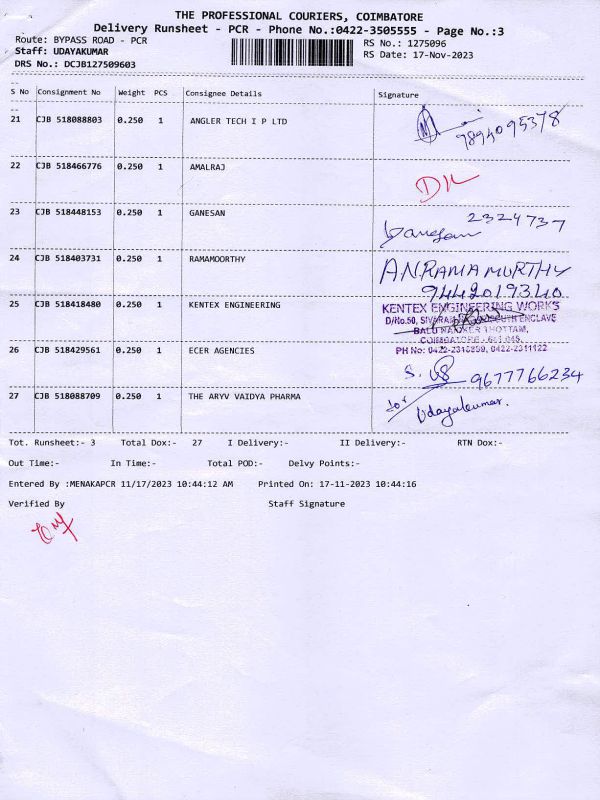 THE PROFESSIONAL COURIERS, COIMBATORE
Delivery Runsheet - PCR - Phone No.:0422-3505555 - Page No.:3
Route: BYPASS ROAD - PCR RS No.: 1275096
Staff: UDAYAKUMAR RS Date: 17-Nov-2023
DRS No.: DCJB127509603
S No Consignment No Weight PCS Consignee Details Signature
21 CJB 518088803 0.250 1 ANGLER TECH I P LTD 9894095378
22 CJB 518466776 0.250 1 AMALRAJ
23 CJB 518448153 0.250 1 GANESAN 2324737
Ganesan
24 CJB 518403731 0.250 1 RAMAMOORTHY ANRAMAMURTHY
9442019340
25 CJB 518418480 0.250 1 KENTEX ENGINEERING KENTEX ENGINEERING WORKS
D/No.50, ENCLAVE
BALU THOTTAM,
COIMBATORE - 641 045.
26 CJB 518429561 0.250 1 ECER AGENCIES PH No: 0422-2318859, 0422-2311122
9677766234
27 CJB 518088709 0.250 1 THE ARYV VAIDYA PHARMA for
Udayakumar.
Tot. Runsheet:- 3 Total Dox:- 27 I Delivery:- II Delivery:- RTN Dox:-
Out Time:- In Time:- Total POD:- Delvy Points:-
Entered By :MENAKAPCR 11/17/2023 10:44:12 AM Printed On: 17-11-2023 10:44:16
Verified By Staff Signature